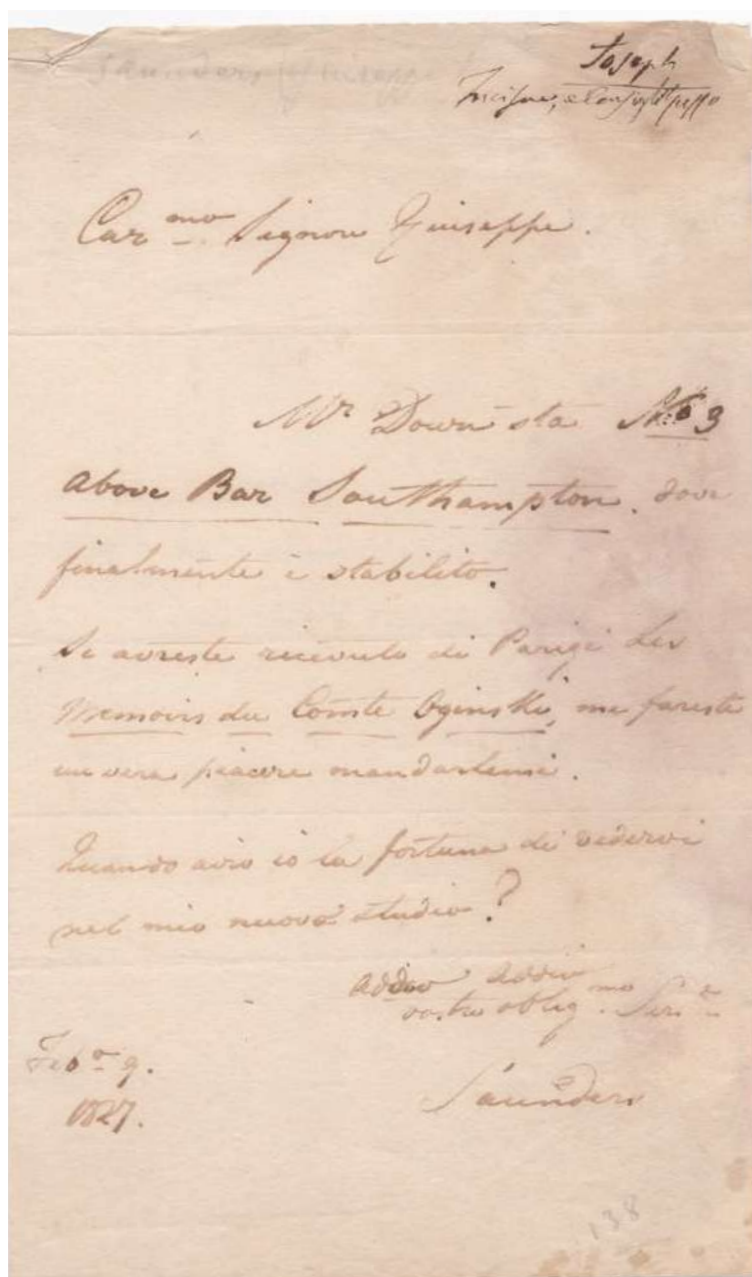 Saunders Giuseppe
Joseph
Incisore, e
Car.mo Signore Giuseppe.
Mr Down sta No 3
above Bar Southampton, dove
finalmente è stabilito.
Se avreste ricevuto di Parigi Les
Memoirs du Comte Oginski, me fareste
un vera piacere mandartemi.
Quando avro io la fortuna di vedervi
nel mio nuovo studio?
addio addio
vostro obblig.mo Ser.re
Saunders
Feb.o 9.
1827.
138